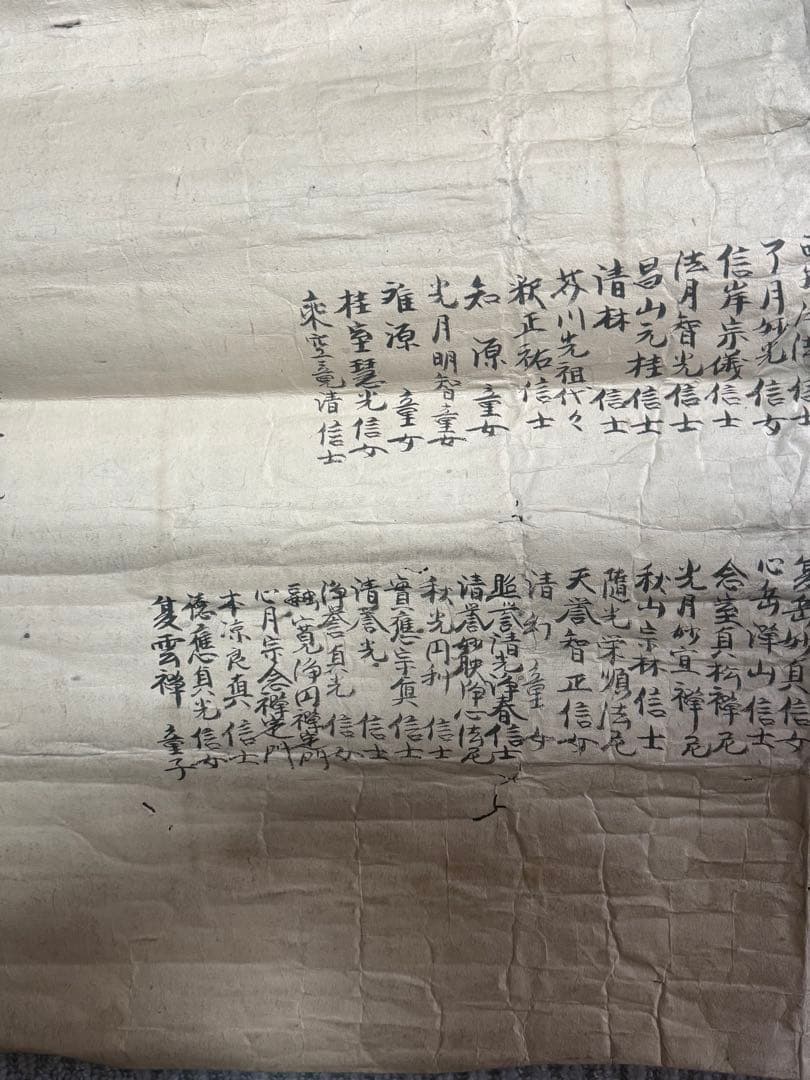 了月妙光信女
信岸宗儀信士
法月智光信士
昌山元桂信士
清林信士
芥川先祖代々
釈正祐信士
知源童女
光月明智童女
源童女
桂室慧光信女
乘空清信士
岳妙貞信女
心岳淨山信士
念室貞松禅尼
光月妙宣禅尼
秋山宗林信士
隨光栄順法尼
天誉智正信女
清童女
誉清光浄春信士
清誉妙浄心法尼
秋光円利信士
實應宗真信士
清誉光信士
浄誉貞光信女
寛浄円禅定門
心月宗念禅定門
本凉良真信士
徳應貞光信女
雲禅童子